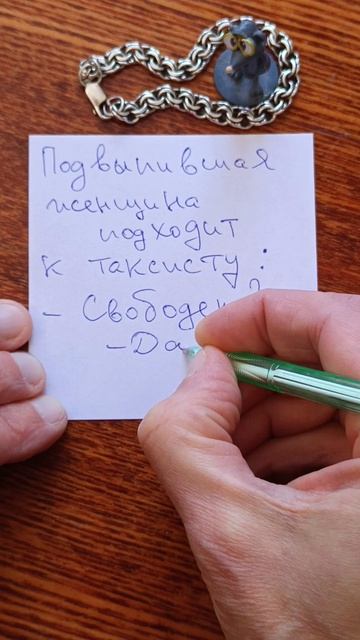 Подвыпившая
женщина
подходит
к таксисту:
- Свободен?
- Да